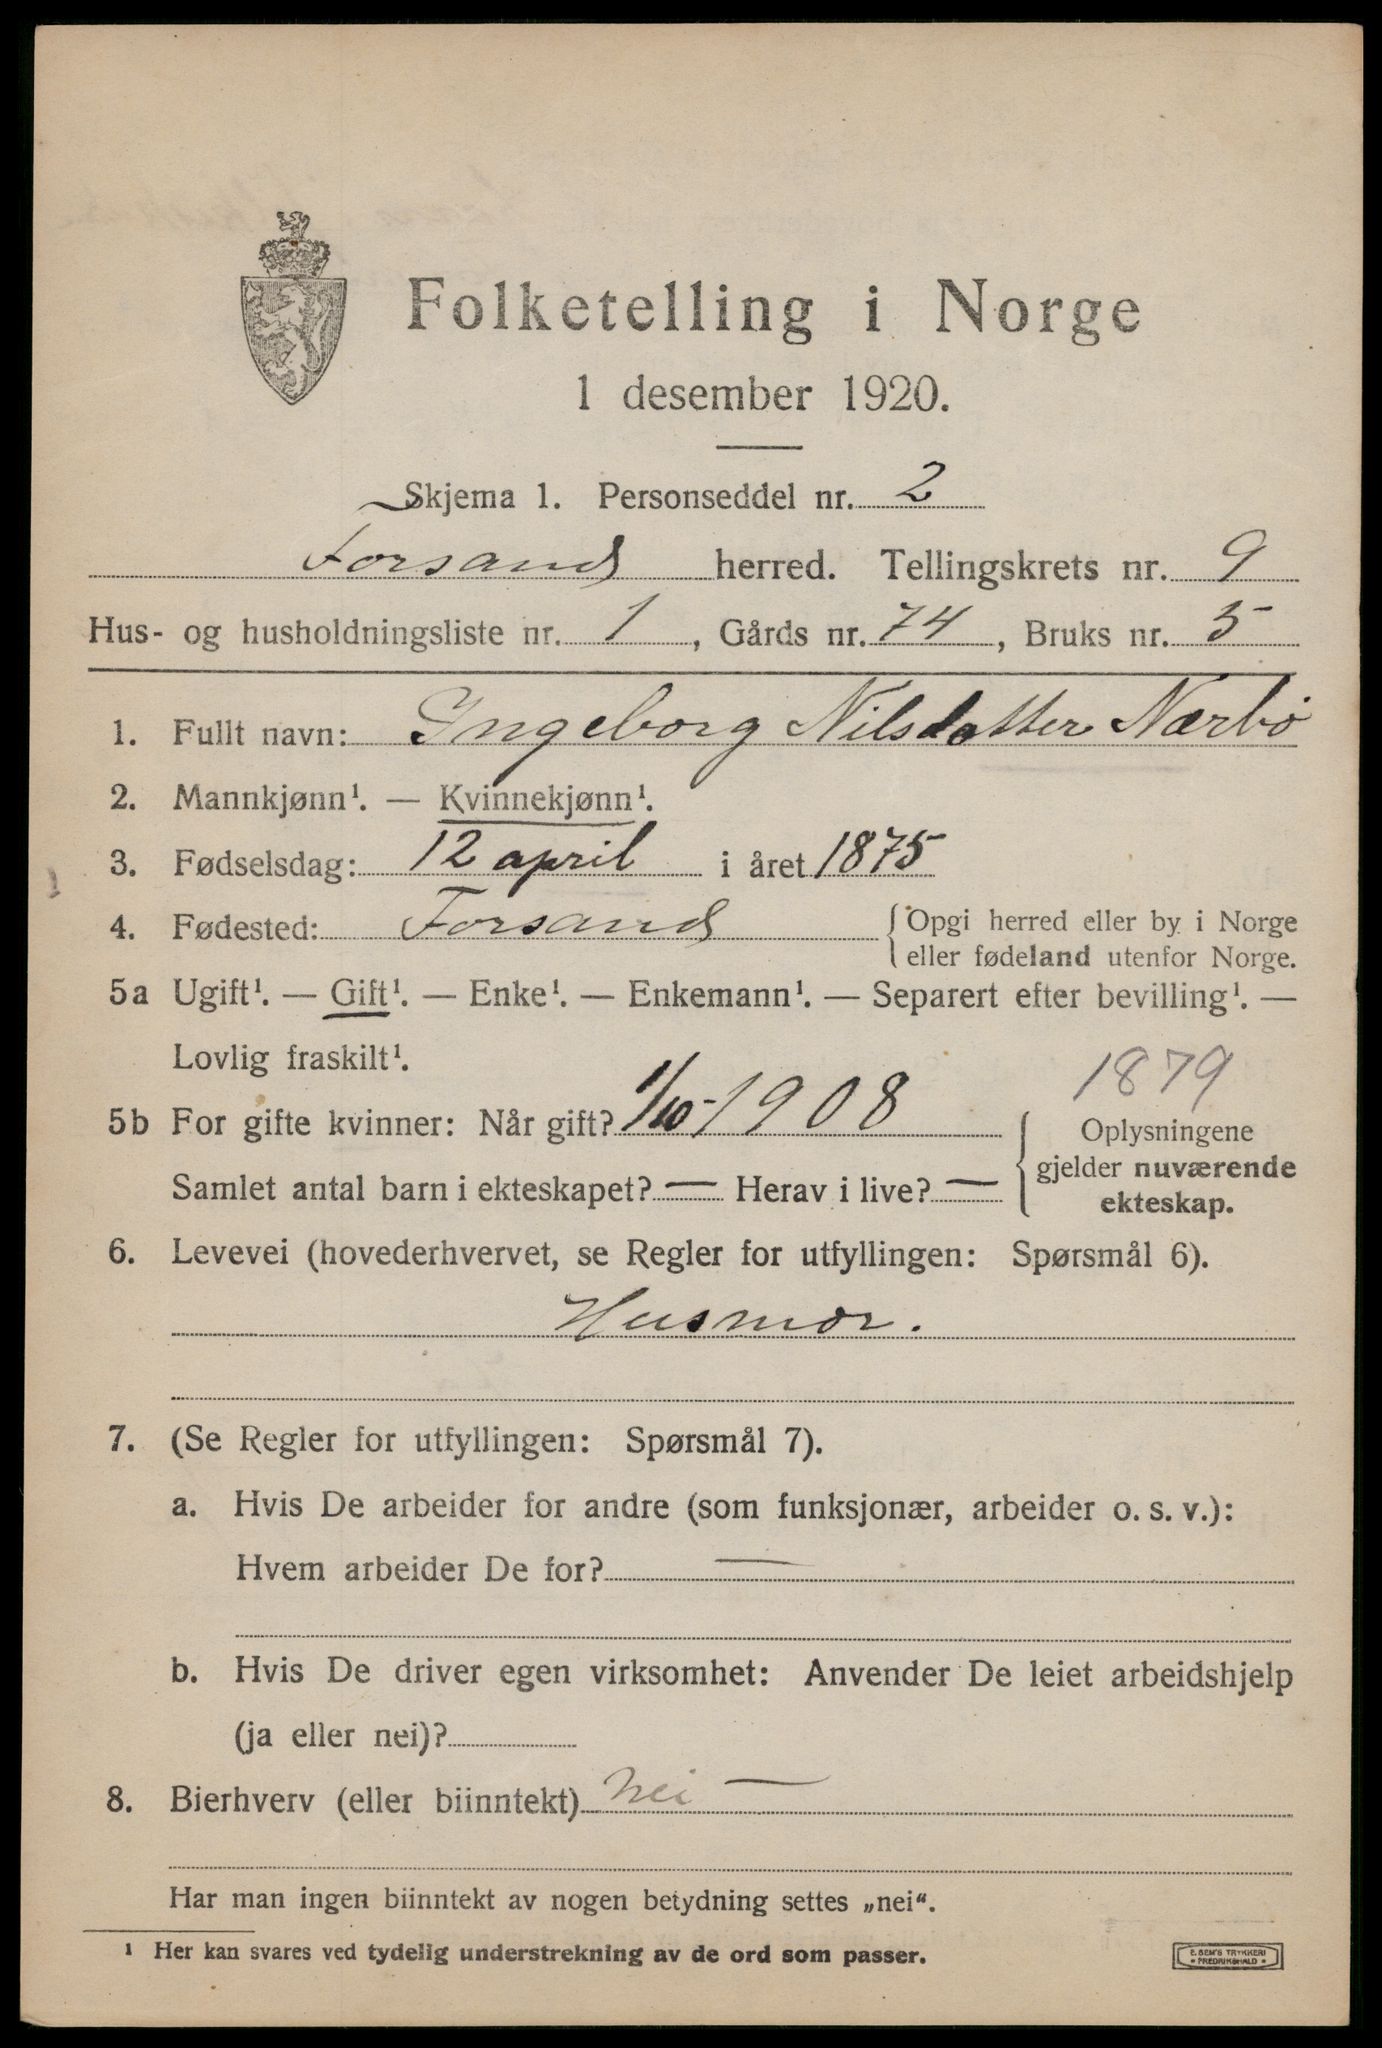 Folketelling i Norge
1 desember 1920.
Skjema 1. Personseddel nr. 2
Forsand herred. Tellingskrets nr. 9
Hus- og husholdningsliste nr. 1, Gårds nr. 74, Bruks nr. 5
1. Fullt navn: Ingeborg Nilsdatter Nærbø
2. Mannkjønn¹. — Kvinnekjønn¹.
3. Fødselsdag: 12 april i året 1875
4. Fødested: Forsand { Opgi herred eller by i Norge
eller fødeland utenfor Norge.
5a Ugift¹. — Gift¹. — Enke¹. — Enkemann¹. — Separert efter bevilling¹. —
Lovlig fraskilt¹.
1879
5b For gifte kvinner: Når gift? 1/10-1908
Oplysningene
gjelder nuværende
ekteskap.
Samlet antal barn i ekteskapet? — Herav i live? —
6. Levevei (hovederhvervet, se Regler for utfyllingen: Spørsmål 6).
Husmor.
7. (Se Regler for utfyllingen: Spørsmål 7).
a. Hvis De arbeider for andre (som funksjonær, arbeider o. s. v.):
Hvem arbeider De for? —
b. Hvis De driver egen virksomhet: Anvender De leiet arbeidshjelp
(ja eller nei)?
8. Bierhverv (eller biinntekt) Nei —
Har man ingen biinntekt av nogen betydning settes „nei“.
¹ Her kan svares ved tydelig understrekning av de ord som passer.
E. SEM'S TRYKKERI
• FREDRIKSHALD •